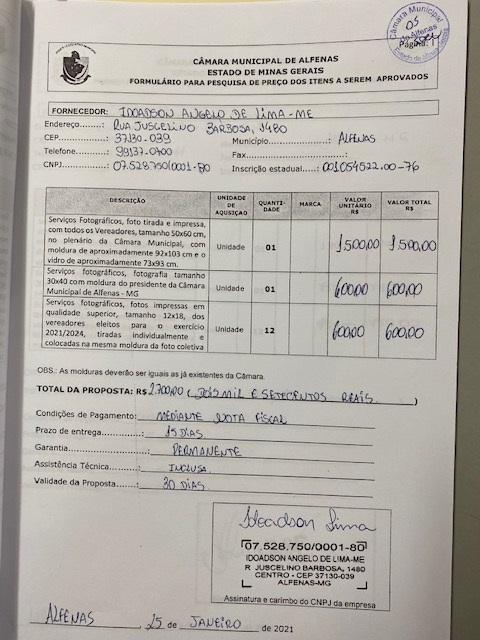 Câmara Municipal
05
de Alfenas
Página: 1
Estado de Minas Gerais
CÂMARA MUNICIPAL DE ALFENAS
ESTADO DE MINAS GERAIS
FORMULÁRIO PARA PESQUISA DE PREÇO DOS ITENS A SEREM APROVADOS
FORNECEDOR: IDOADSON ANGELO DE LIMA-ME
Endereço........: RUA JUSCELINO BARBOSA, 1480
CEP...............: 37130.039 Município................: ALFENAS
Telefone.........: 99137-0400 Fax........................:
CNPJ..............: 07.528.750/0001-80 Inscrição estadual....: 001054522.00-76
DESCRIÇÃO UNIDADE DE AQUSIÇAO QUANTI-DADE MARCA VALOR UNITÁRIO R$ VALOR TOTAL R$
Serviços Fotográficos, foto tirada e impressa,
com todos os Vereadores, tamanho 50x60 cm,
no plenário da Câmara Municipal, com Unidade 01 1500,00 1500,00
moldura de aproximadamente 92x103 cm e o
vidro de aproximadamente 73x93 cm.
Serviços fotográficos, fotografia tamanho
30x40 com moldura do presidente da Câmara Unidade 01 600,00 600,00
Municipal de Alfenas - MG
Serviços fotográficos, fotos impressas em
qualidade superior, tamanho 12x18, dos
vereadores eleitos para o exercício Unidade 12 600,00 600,00
2021/2024, tiradas individualmente e
colocadas na mesma moldura da foto coletiva
OBS.: As molduras deverão ser iguais as já existentes da Câmara.
TOTAL DA PROPOSTA: R$ 2.700,00 (DOIS MIL E SETECENTOS REAIS)
Condições de Pagamento: MEDIANTE NOTA FISCAL
Prazo de entrega...........: 15 DIAS
Garantia........................: PERMANENTE
Assistência Técnica.........: INCLUSA
Validade da Proposta......: 30 DIAS
Idoadson Lima
07.528.750/0001-80
IDOADSON ANGELO DE LIMA-ME
R JUSCELINO BARBOSA, 1480
CENTRO - CEP 37130-039
ALFENAS-MG
Assinatura e carimbo do CNPJ da empresa
ALFENAS, 25 de JANEIRO de 2021